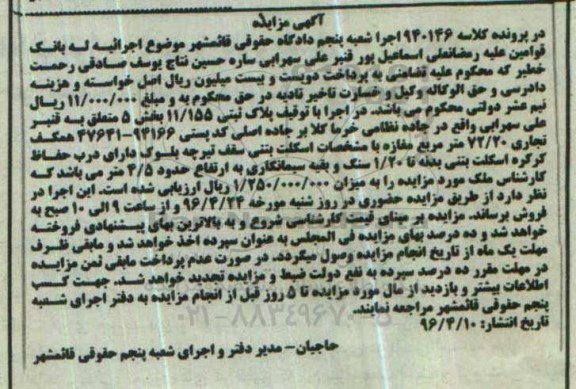 آگهی مزایده
در پرونده کلاسه ۹۴۰۱۴۶ اجرا شعبه پنجم دادگاه حقوقی قائمشهر موضوع اجرائیه له بانک
قوامین علیه رمضانعلی اسماعیل پور قنبر علی سهرابی ساره حسین نتاج یوسف صادقی رحمت
خطیر که محکوم علیه تضامنی به پرداخت دویست و بیست میلیون ریال اصل خواسته و هزینه
دادرسی و حق الوکاله وکیل و خسارت تاخیر تادیه در حق محکوم به و مبلغ ۱۱/۰۰۰/۰۰۰ ریال
نیم عشر دولتی محکوم می باشد. در اجرا با توقیف پلاک ثبتی ۱۱/۱۵۵ بخش ۵ متعلق به قنبر
علی سهرابی واقع در جاده نظامی خرما کلا بر جاده اصلی کد پستی ۹۴۱۶۶-۴۷۶۴۱ همکف
تجاری ۷۲/۲۰ متر مربع مغازه با مشخصات اسکلت بتنی سقف تیرچه بلوک دارای درب حفاظ
کرکره اسکلت بتنی بدنه تا ۱/۲۰ سنگ و بقیه سیمانکاری به ارتفاع حدود ۴/۵ متر می باشد که
کارشناس ملک مورد مزایده را به میزان ۱/۲۵۰/۰۰۰/۰۰۰ ریال ارزیابی شده است. این اجرا در
نظر دارد از طریق مزایده حضوری در روز شنبه مورخه ۹۶/۴/۲۴ و از ساعت ۹ الی ۱۰ صبح به
فروش برساند. مزایده بر مبنای قیمت کارشناسی شروع و به بالاترین بهای پیشنهادی فروخته
خواهد شد و ده درصد بهای مزایده فی المجلس به عنوان سپرده اخذ خواهد شد و مابقی ظرف
مهلت یک ماه از تاریخ انجام مزایده وصول میگردد. در صورت عدم پرداخت مابقی ثمن مزایده
در مهلت مقرر ده درصد سپرده به نفع دولت ضبط و مزایده تجدید خواهد شد. جهت کسب
اطلاعات بیشتر و بازدید از مال مورد مزایده تا ۵ روز قبل از انجام مزایده به دفتر اجرای شعبه
پنجم حقوقی قائمشهر مراجعه نمایند.
تاریخ انتشار: ۹۶/۴/۱۰
حاجیان - مدیر دفتر و اجرای شعبه پنجم حقوقی قائمشهر